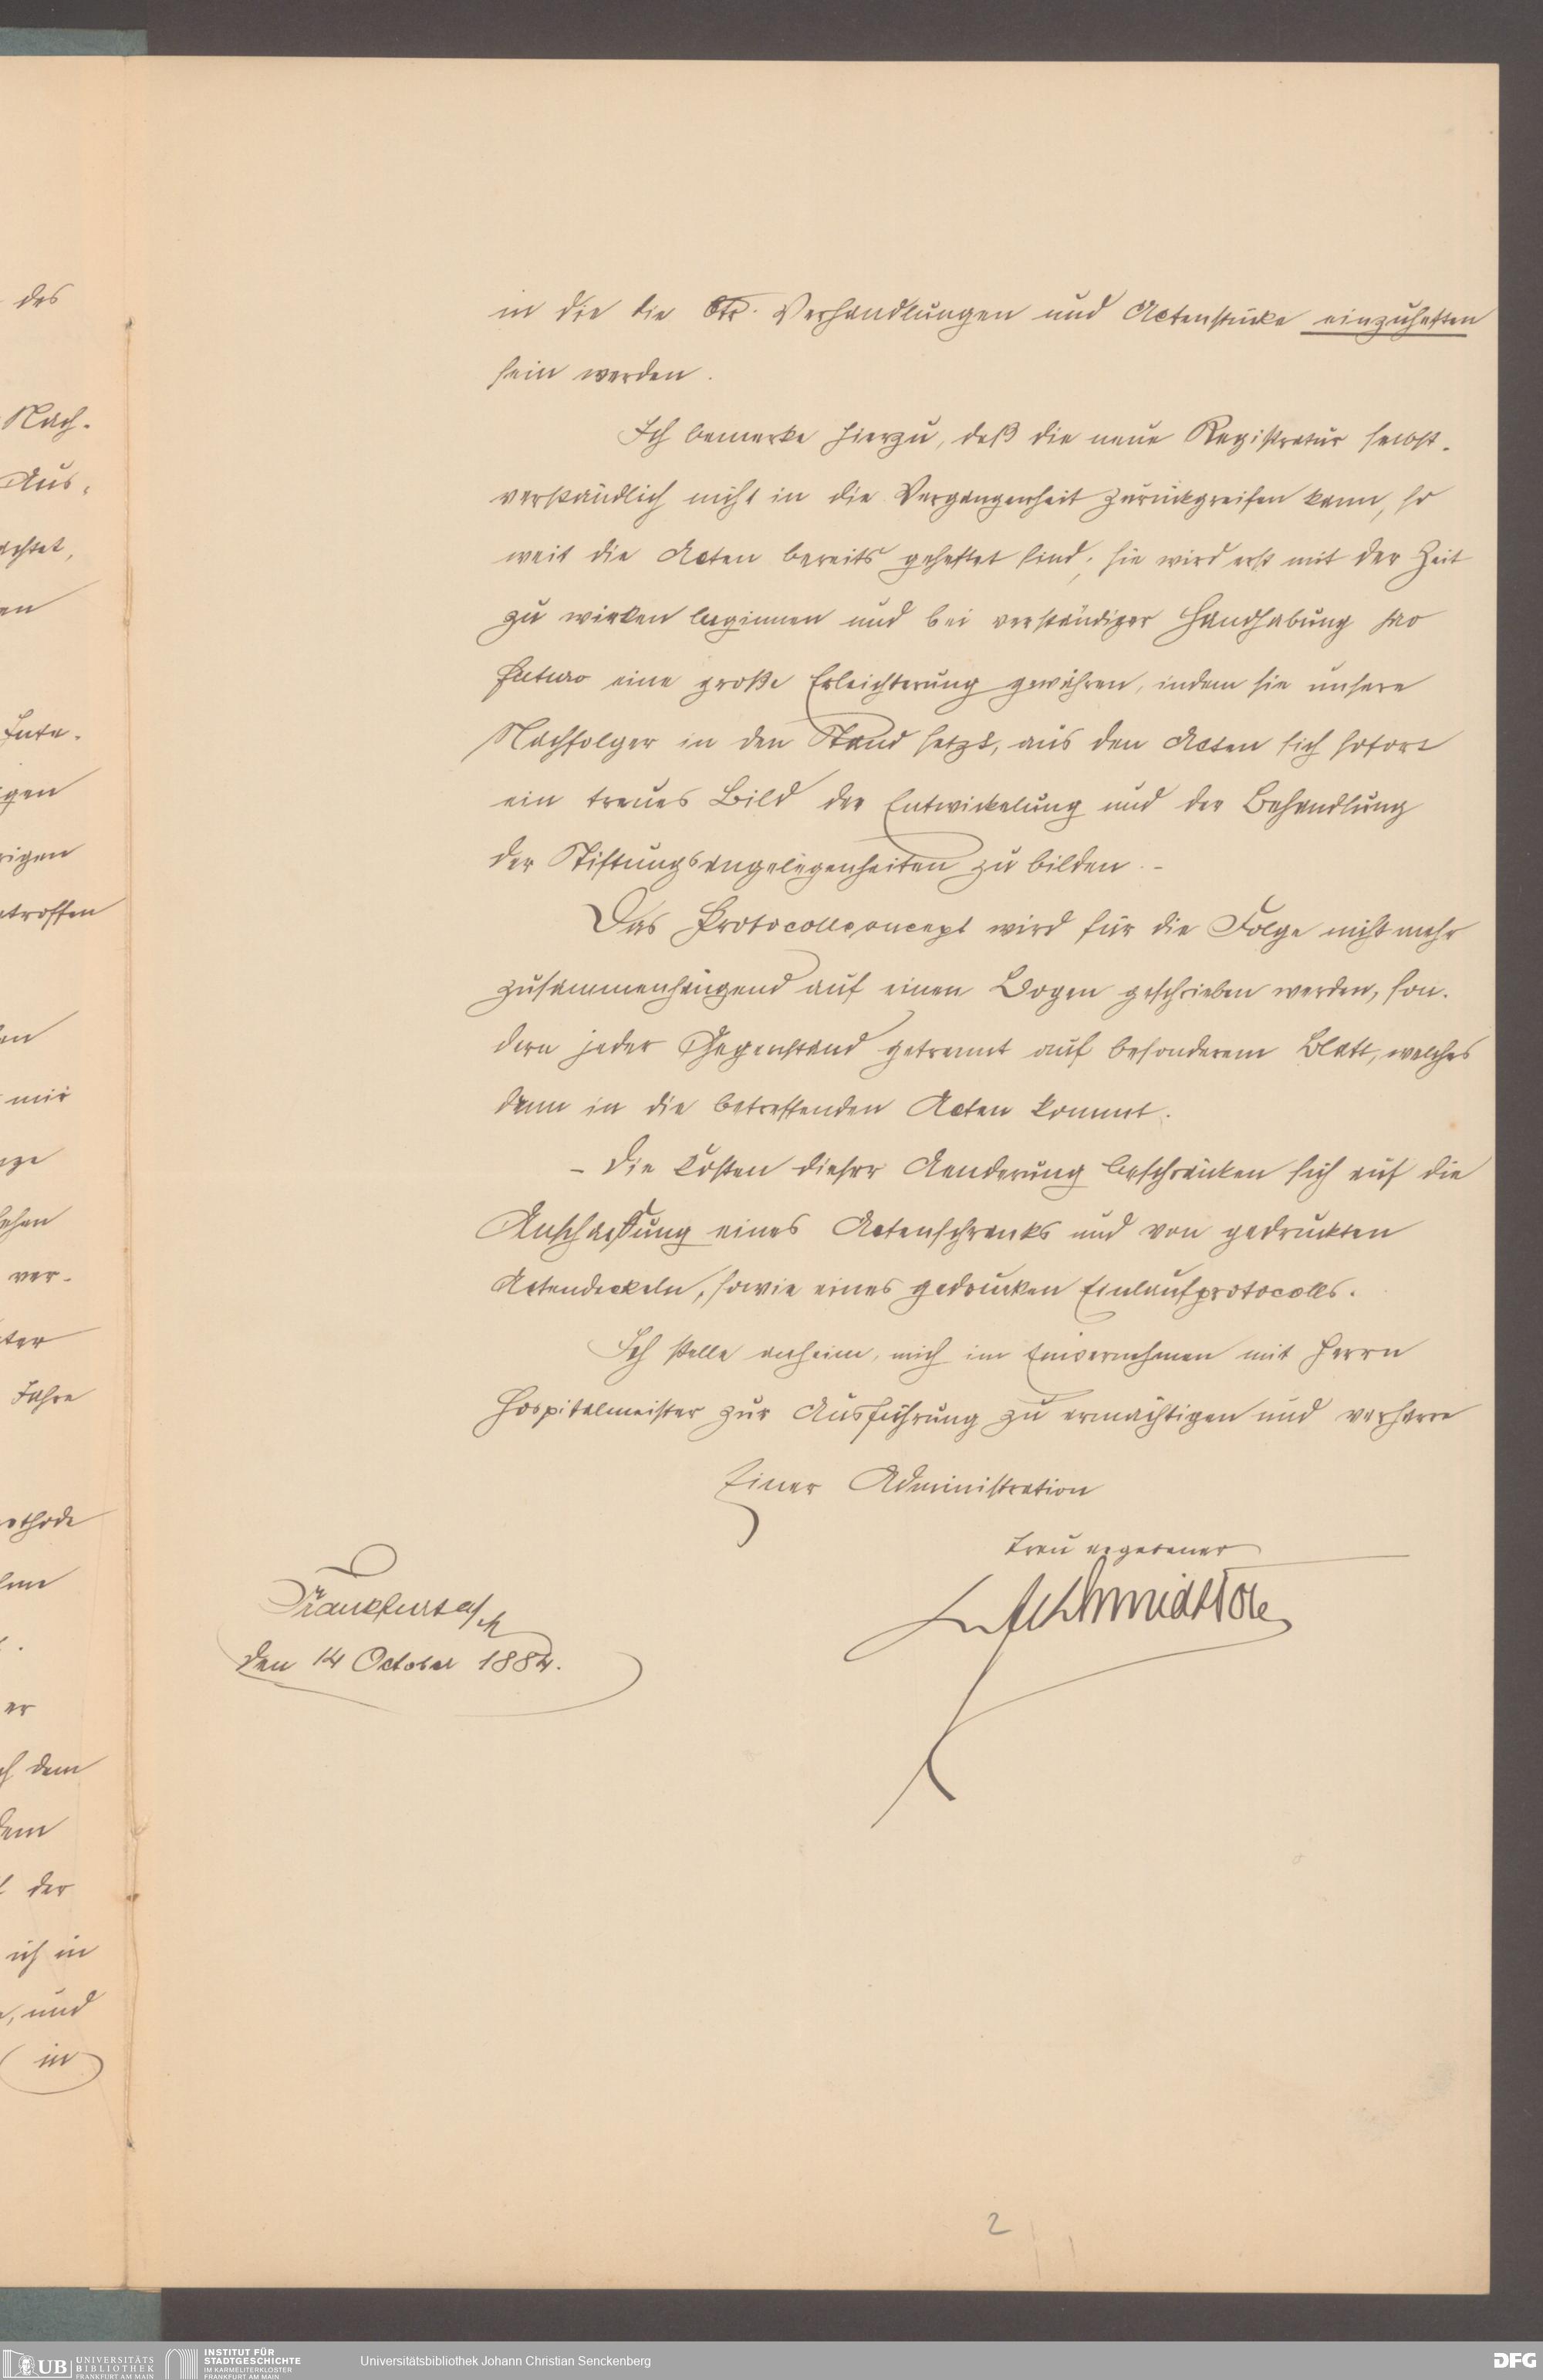 des
Nach-
Aus-
achtet,
en
Inte-
igen
rigen
etroffen
en
mir
nze
sehen
ver-
ter
Jahre
ethode
er
dem
dem
der
ich in
, und
in
in die die Verhandlungen und Actenstücke einzuheften
sein werden.
Ich bemerke hierzu, daß die neue Registratur selbst-
verständlich nicht in die Vergangenheit zurückgreifen kann, so
weit die Acten bereits geheftet sind; sie wird erst mit der Zeit
zu wirken beginnen und bei verständiger Handhabung pro
futuro eine große Erleichterung gewähren, indem sie unsere
Nachfolger in den Stand setzt, aus den Acten sich sofort
ein treues Bild der Entwickelung und der Behandlung
der Stiftungsangelegenheiten zu bilden. -
Das Protocollconcept wird für die Folge nicht mehr
zusammenhängend auf einen Bogen geschrieben werden, son-
dern jeder Gegenstand getrennt auf besonderem Blatt, welches
dann in die betreffenden Acten kommt.
- Die Kosten dieser Aenderung beschränken sich auf die
Anschaffung eines Actenschranks und von gedruckten
Actendeckeln, sowie eines gedruckten Einlaufprotocolls.
Ich stelle anheim, mich im Einvernehmen mit Herrn
Hospitalmeister zur Ausführung zu ermächtigen und verharre
Einer Administration
treu ergebener
Frankfurt a/M
den 14 October 1884.
2
UB UNIVERSITÄTS
BIBLIOTHEK
FRANKFURT AM MAIN
INSTITUT FÜR
STADTGESCHICHTE
IM KARMELITERKLOSTER
FRANKFURT AM MAIN
Universitätsbibliothek Johann Christian Senckenberg
DFG